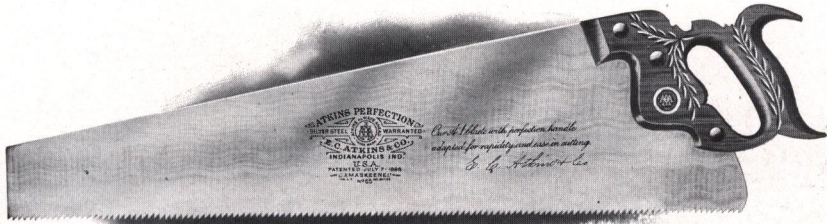 ATKINS PERFECTION
SILVER STEEL WARRANTED
E.C. ATKINS & CO.
INDIANAPOLIS IND.
U.S.A.
PATENTED JULY 7-
DAMASKEENED
Our A.1 blade with perfection handle
adapted for rapidity and ease in cutting
E. C. Atkins & Co